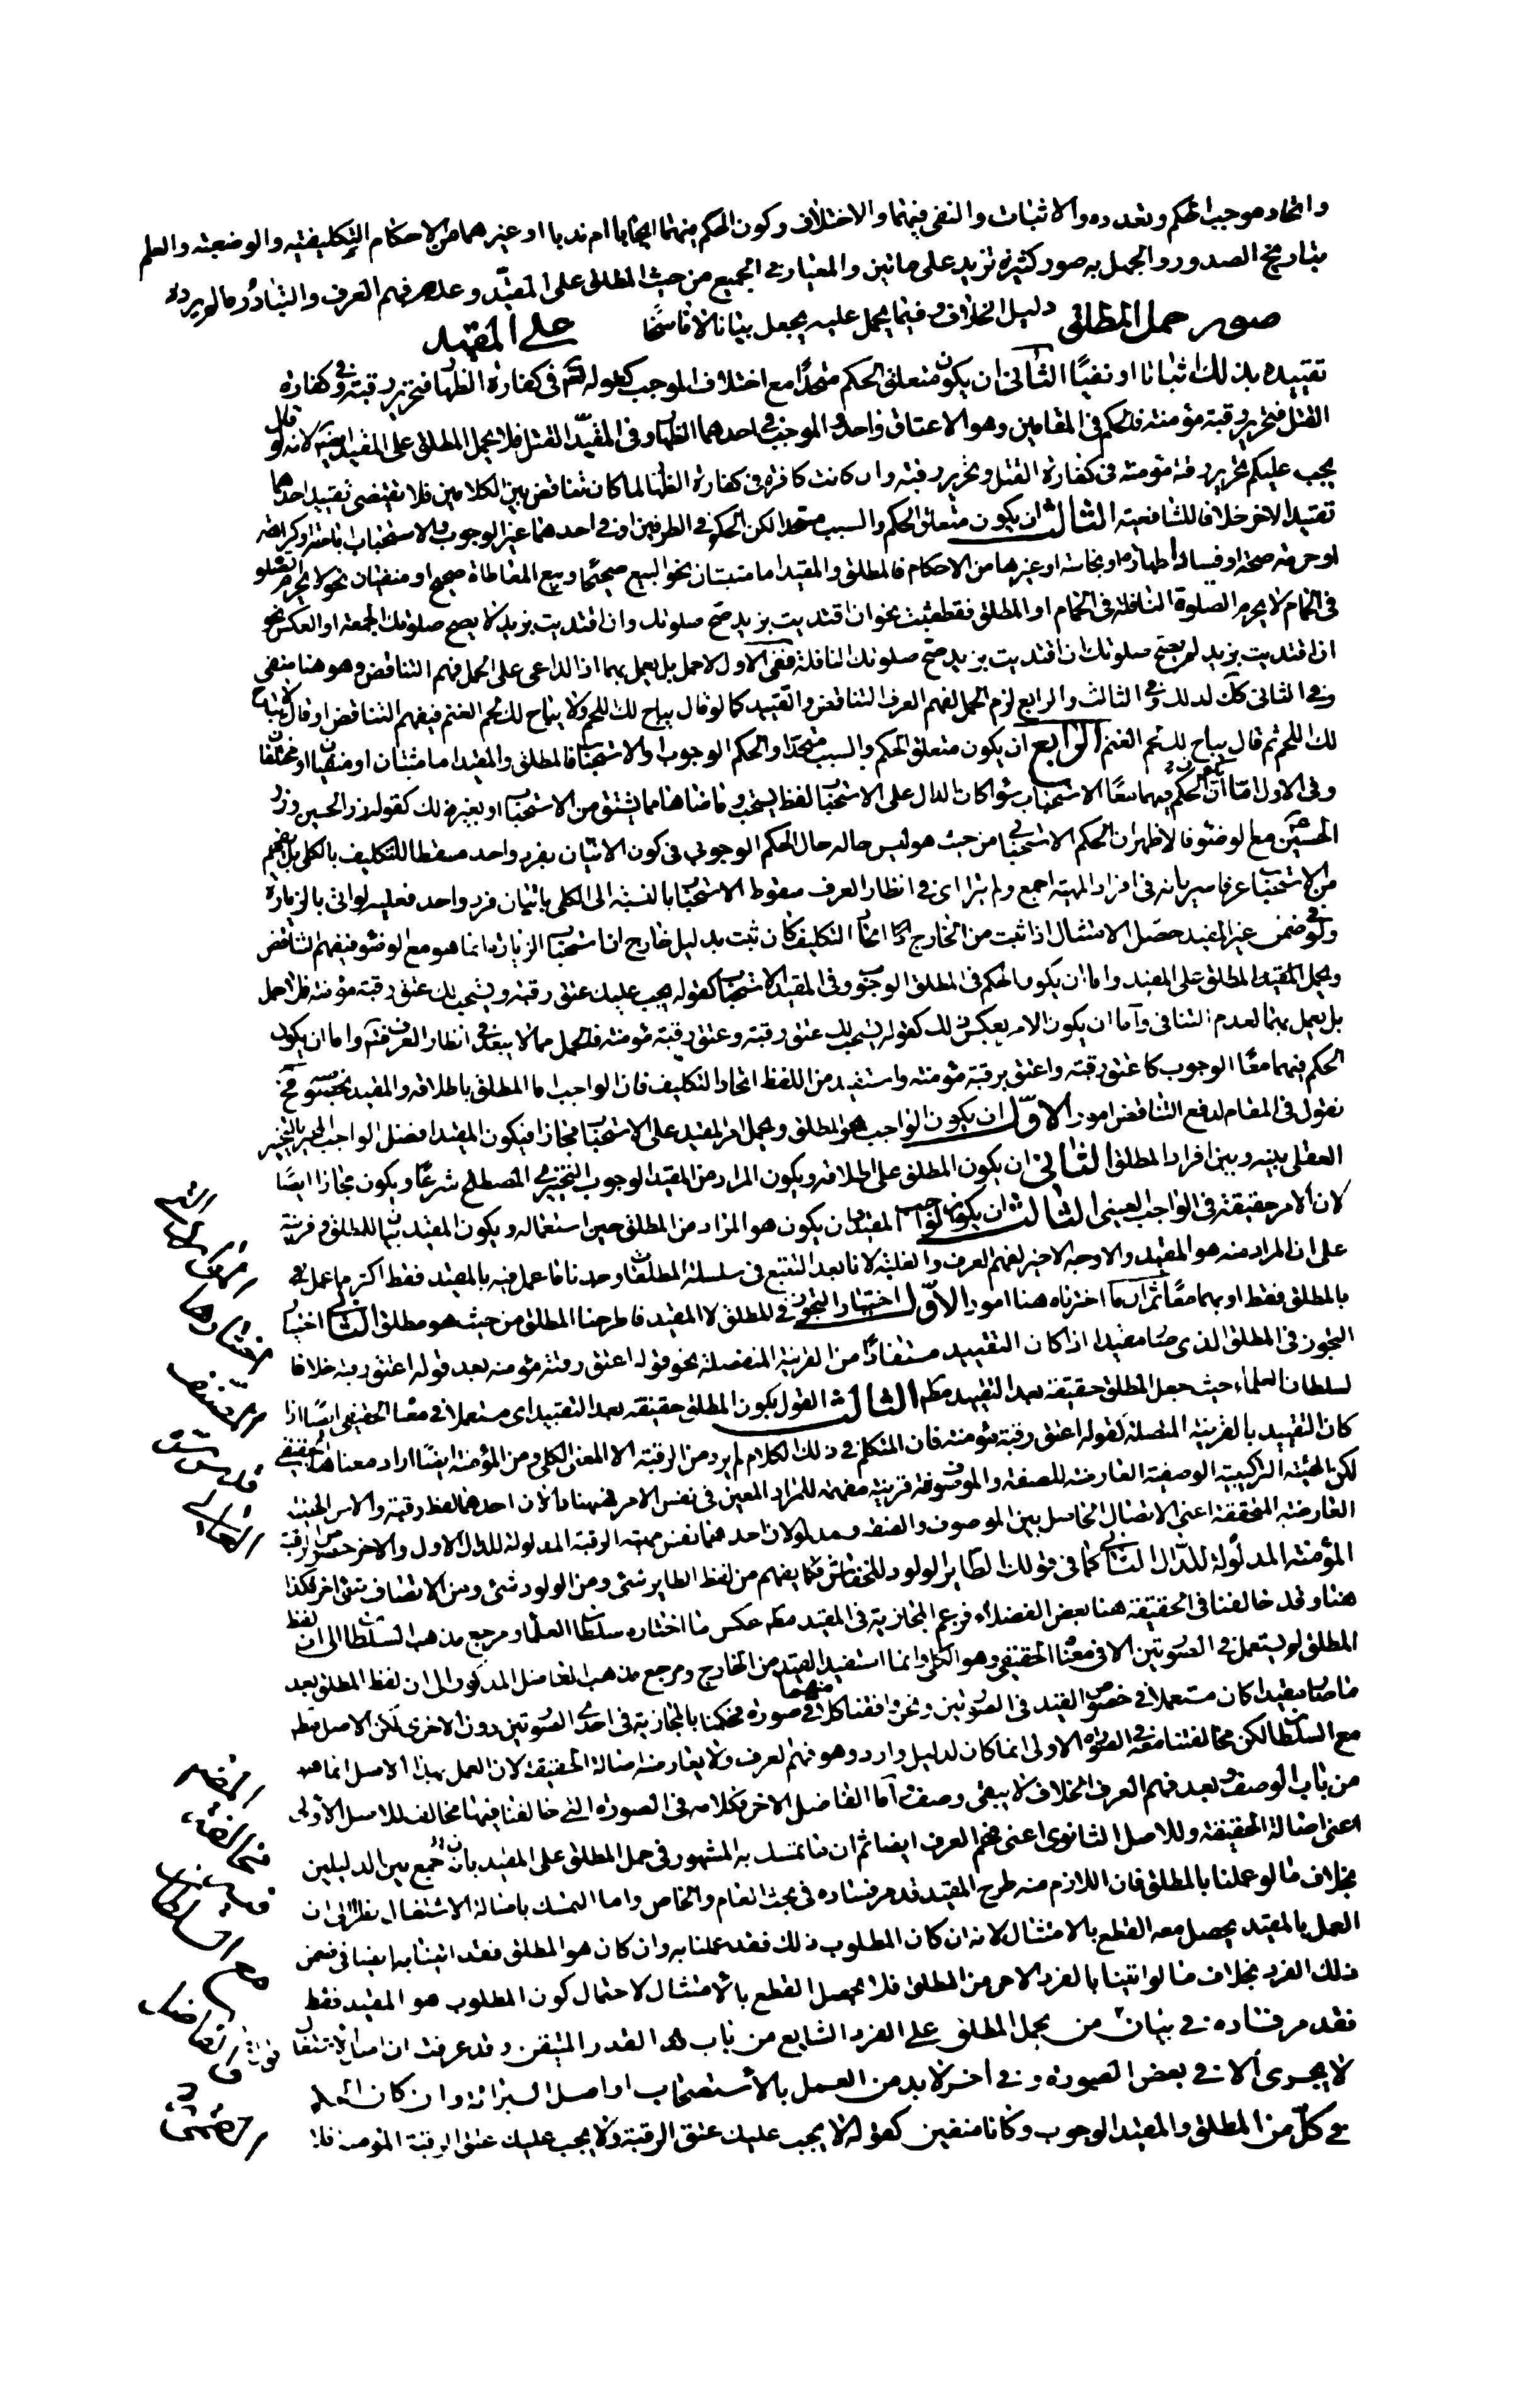 واتحاد موجب الحكم وتعدده والاثبات والنفى فيهما والاختلاف وكون الحكم فيهما ايجابا ام ندبا او غيرهما من الاحكام التكليفيته والوضعيته والعلم
بتاريخ الصدور والجهل به صور كثيرة تزيد على مأتين والمعيار فى الجميع من حيث المطلق على المقيد وعدمه فهم العرف والتبادر ما لم يرد
دليل الخلاف وفيما يحمل عليه يجعل بيانا لا ناسخا
صور حمل المطلق على المقيد
تقييده بذلك اثباتا او نفيا الثانى ان يكون متعلق الحكم متحدا مع اختلاف الموجب كقوله تعم فى كفارة الظهار فتحرير رقبة وفى كفارة
القتل فتحرير رقبة مؤمنة فالحكم فى المقامين وهو الاعتاق واحد والموجب فى احدهما الظهار وفى المقيد القتل فلا يحمل المطلق على المقيد لانه لو قال
يجب عليكم تحرير رقبة مؤمنة فى كفارة القتل وتحرير رقبة وان كانت كافرة فى كفارة الظهار لما كان تناقض بين الكلامين فلا يقتضى تقييد احدهما
تقييد الاخر خلافا للشافعية الثالث ان يكون متعلق الحكم والسبب متحدا لكن الحكم فى الطرفين او فى احدهما غير الوجوب والاستحباب اباحة وكراهة
او حرمة صحة او فسادا طهارة او نجاسة او غيرها من الاحكام فالمطلق والمقيد اما مثبتان نحو البيع صحيح وبيع المعاطاة صحيح او منفيان نحو لا يحرم الصلو
فى الحمام لا يحرم الصلوة النافلة فى الحمام او المطلق فقط مثبت نحو ان اقتديت بزيد صح صلوتك وان اقتديت بزيد لا يصح صلوتك الجمعة او العكس نحو
ان اقتديت بزيد لم يصح صلوتك ان اقتديت بزيد صح صلوتك النافلة ففى الاول لا حمل بل يعمل بهما اذ الداعى على الحمل فهم التناقض وهو هنا منفى
وفى الثانى كك لذلك وفى الثالث والرابع لزم الحمل لفهم العرف التناقض والتقييد كما لو قال يباح لك اللحم ولا يباح لك لحم الغنم فيفهم التناقض او قال لا يباح
لك اللحم ثم قال يباح لك لحم الغنم الرابع ان يكون متعلق الحكم والسبب متحدا والحكم الوجوب او الاستحباب فالمطلق والمقيد اما مثبتان او منفيان او مختلفان
وفى الاول اما ان يكون الحكم فيهما معا الاستحباب سواء كان الدال على الاستحباب لفظ يستحب وما ضاهاه مما يشتق من الاستحباب او بغير ذلك كقوله زر الحسين وزر
الحسين مع الوضوء فالاظهر ان الحكم الاستحبابى من حيث هو ليس حاله حال الحكم الوجوبى فى كون الاتيان بفرد واحد مسقطا للتكليف بالكلى بل يفهم
من الاستحباب عرفا سريانه فى افراد المهية اجمع ولم يترااى فى انظار العرف سقوط الاستحباب بالنسبة الى الكلى باتيان فرد واحد فعليه لو اتى بالزيارة
ولو فى ضمن غير المقيد حصل الامتثال اذا ثبت من الخارج اتحاد التكليف كان ثبت بدليل خارج ان استحباب الزيارة انما هو مع الوضوء فيفهم التناقض
ويحمل المطلق على المقيد واما ان يكون الحكم فى المطلق الوجوب وفى المقيد الاستحباب كقوله يجب عليك عتق رقبة ويستحب لك عتق رقبة مؤمنة فلا حمل
بل يعمل بهما لعدم التنافى واما ان يكون الامر بعكس ذلك كقوله يستحب لك عتق رقبة وعتق رقبة مؤمنة فالحمل مما لا يبعد فى انظار العرف فت واما ان يكون
الحكم فيهما معا الوجوب كاعتق رقبة واعتق رقبة مؤمنة واستفيد من اللفظ اتحاد التكليف فان الواجب اما المطلق باطلاقه والمقيد بخصوصه فح
نقول فى المقام لدفع التناقض امور الاول ان يكون الواجب هو المطلق ويحمل امر المقيد على الاستحباب مجازا فيكون المقيد افضل الواجب المخير بالتخيير
العقلى بينه وبين افراد المطلق الثانى ان يكون المطلق على اطلاقه ويكون المراد من المقيد الوجوب التخييرى المصطلح شرعا ويكون مجازا ايضا
لان الامر حقيقة فى الواجب العينى الثالث ان يكون الواجب المقيد بان يكون هو المراد من المطلق حين استعماله ويكون المقيد بيانا للمطلق وقرينة
على ان المراد منه هو المقيد والاوجه الاخير لفهم العرف والغلبة لانا بعد التتبع فى سلسلة المطلقات وجدنا ما عمل فيه بالمقيد فقط اكثر مما عمل فيه
بالمطلق فقط او بهما معا ثم ان ما اخترناه هنا امور الاول اختيار التجوز فى المطلق لا المقيد فاطرحنا المطلق من حيث هو مطلق الثانى اختيار
التجوز فى المطلق الذى صار مقيدا اذا كان التقييد مستفادا من القرينة المنفصلة نحو قوله اعتق رقبة مؤمنة بعد قوله اعتق رقبة خلافا
لسلطان العلماء حيث جعل المطلق حقيقة بعد التقييد مطم الثالث القول بكون المطلق حقيقة بعد التقييد اى مستعملا فى معناه الحقيقى ايضا اذا
كان التقييد بالقرينة المتصلة كقوله اعتق رقبة مؤمنة فان المتكلم فى ذلك الكلام لم يرد من الرقبة الا المعنى الكلى ومن المؤمنة ايضا اراد معناها الحقيقى
لكن الهيئة التركيبية الوصفية العارضة للصفة والموصوفة قرينة مفهمة للمراد المعين فى نفس الامر فهيهنا دالان احدهما لفظ رقبة والاخر الهيئة
العارضة المتحققة اعنى الاتصال الحاصل بين الموصوف والصفة ومدلولان احدهما نفس مهية الرقبة المدلولة للدال الاول والاخر خصوص الرقبة
المؤمنة المدلولة للدال الثانى كما فى قولك الطاير الولود للخفاش فكما يفهم من لفظ الطاير شئ ومن الولود شئ ومن الاتصاف شئ اخر فكذا
هنا وقد خالفنا فى الحقيقة هنا بعض الفضلاء فزعم المجازية فى المقيد مطم عكس ما اختاره سلطان العلماء ومرجع مذهب السلطان الى ان لفظ
المطلق لم يستعمل فى الصورتين الا فى معناه الحقيقى وهو الكلى وانما استفيد القيد من الخارج ومرجع مذهب الفاضل المذكور الى ان لفظ المطلق بعد
ما صار مقيدا كان مستعملا فى خصوص القيد فى الصورتين ونحن وافقنا كلا منهما فى صورة فحكمنا بالمجازية فى احدى الصورتين دون الاخرى لكن الاصل مطم
مع السلطان لكن مخالفتنا معه فى الصورة الاولى انما كان لدليل وارد وهو فهم العرف ولا يعارضه اصالة الحقيقة لان العمل بهذا الاصل انما هو
من باب الوصف وبعد فهم العرف الخلاف لا يبقى وصف اما الفاضل الاخر فكلامه فى الصورة التى خالفنا فيها مخالف للاصل الاولى
اعنى اصالة الحقيقة وللاصل الثانوى اعنى فهم العرف ايضا ثم ان ما تمسك به المشهور فى حمل المطلق على المقيد بان جمع بين الدليلين
بخلاف ما لو عملنا بالمطلق فان اللازم منه طرح المقيد قد مر فساده فى بحث العام والخاص واما التمسك باصالة الاشتغال نظرا الى ان
العمل بالمقيد يحصل معه القطع بالامتثال لانه ان كان المطلوب ذلك فقد عملنا به وان كان هو المطلق فقد اتينا به ايضا فى ضمن
ذلك الفرد بخلاف ما لو اتينا بالفرد الاخر من المطلق فلا يحصل القطع بالامتثال لاحتمال كون المطلوب هو المقيد فقط
فقد مر فساده فى بيان من يحمل المطلق على الفرد الشايع من باب القدر المتيقن وقد عرفت ان اصالة الاشتغال
لا يجرى الا فى بعض الصورة وفى اخر لا بد من العمل بالاستصحاب او اصل البرائة وان كان الحكم
فى كل من المطلق والمقيد الوجوب وكانا منفيين كقوله لا يجب عليك عتق الرقبة ولا يجب عليك عتق الرقبة المؤمنة فلا